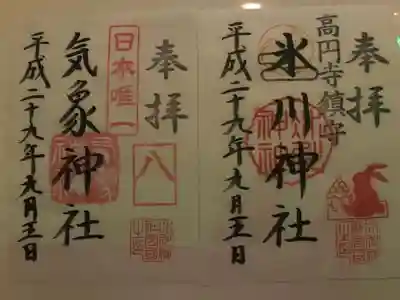 奉拝
高円寺鎮守
氷川神社
平成二十九年九月三日
奉拝
日本唯一
八
気象神社
平成二十九年九月三日